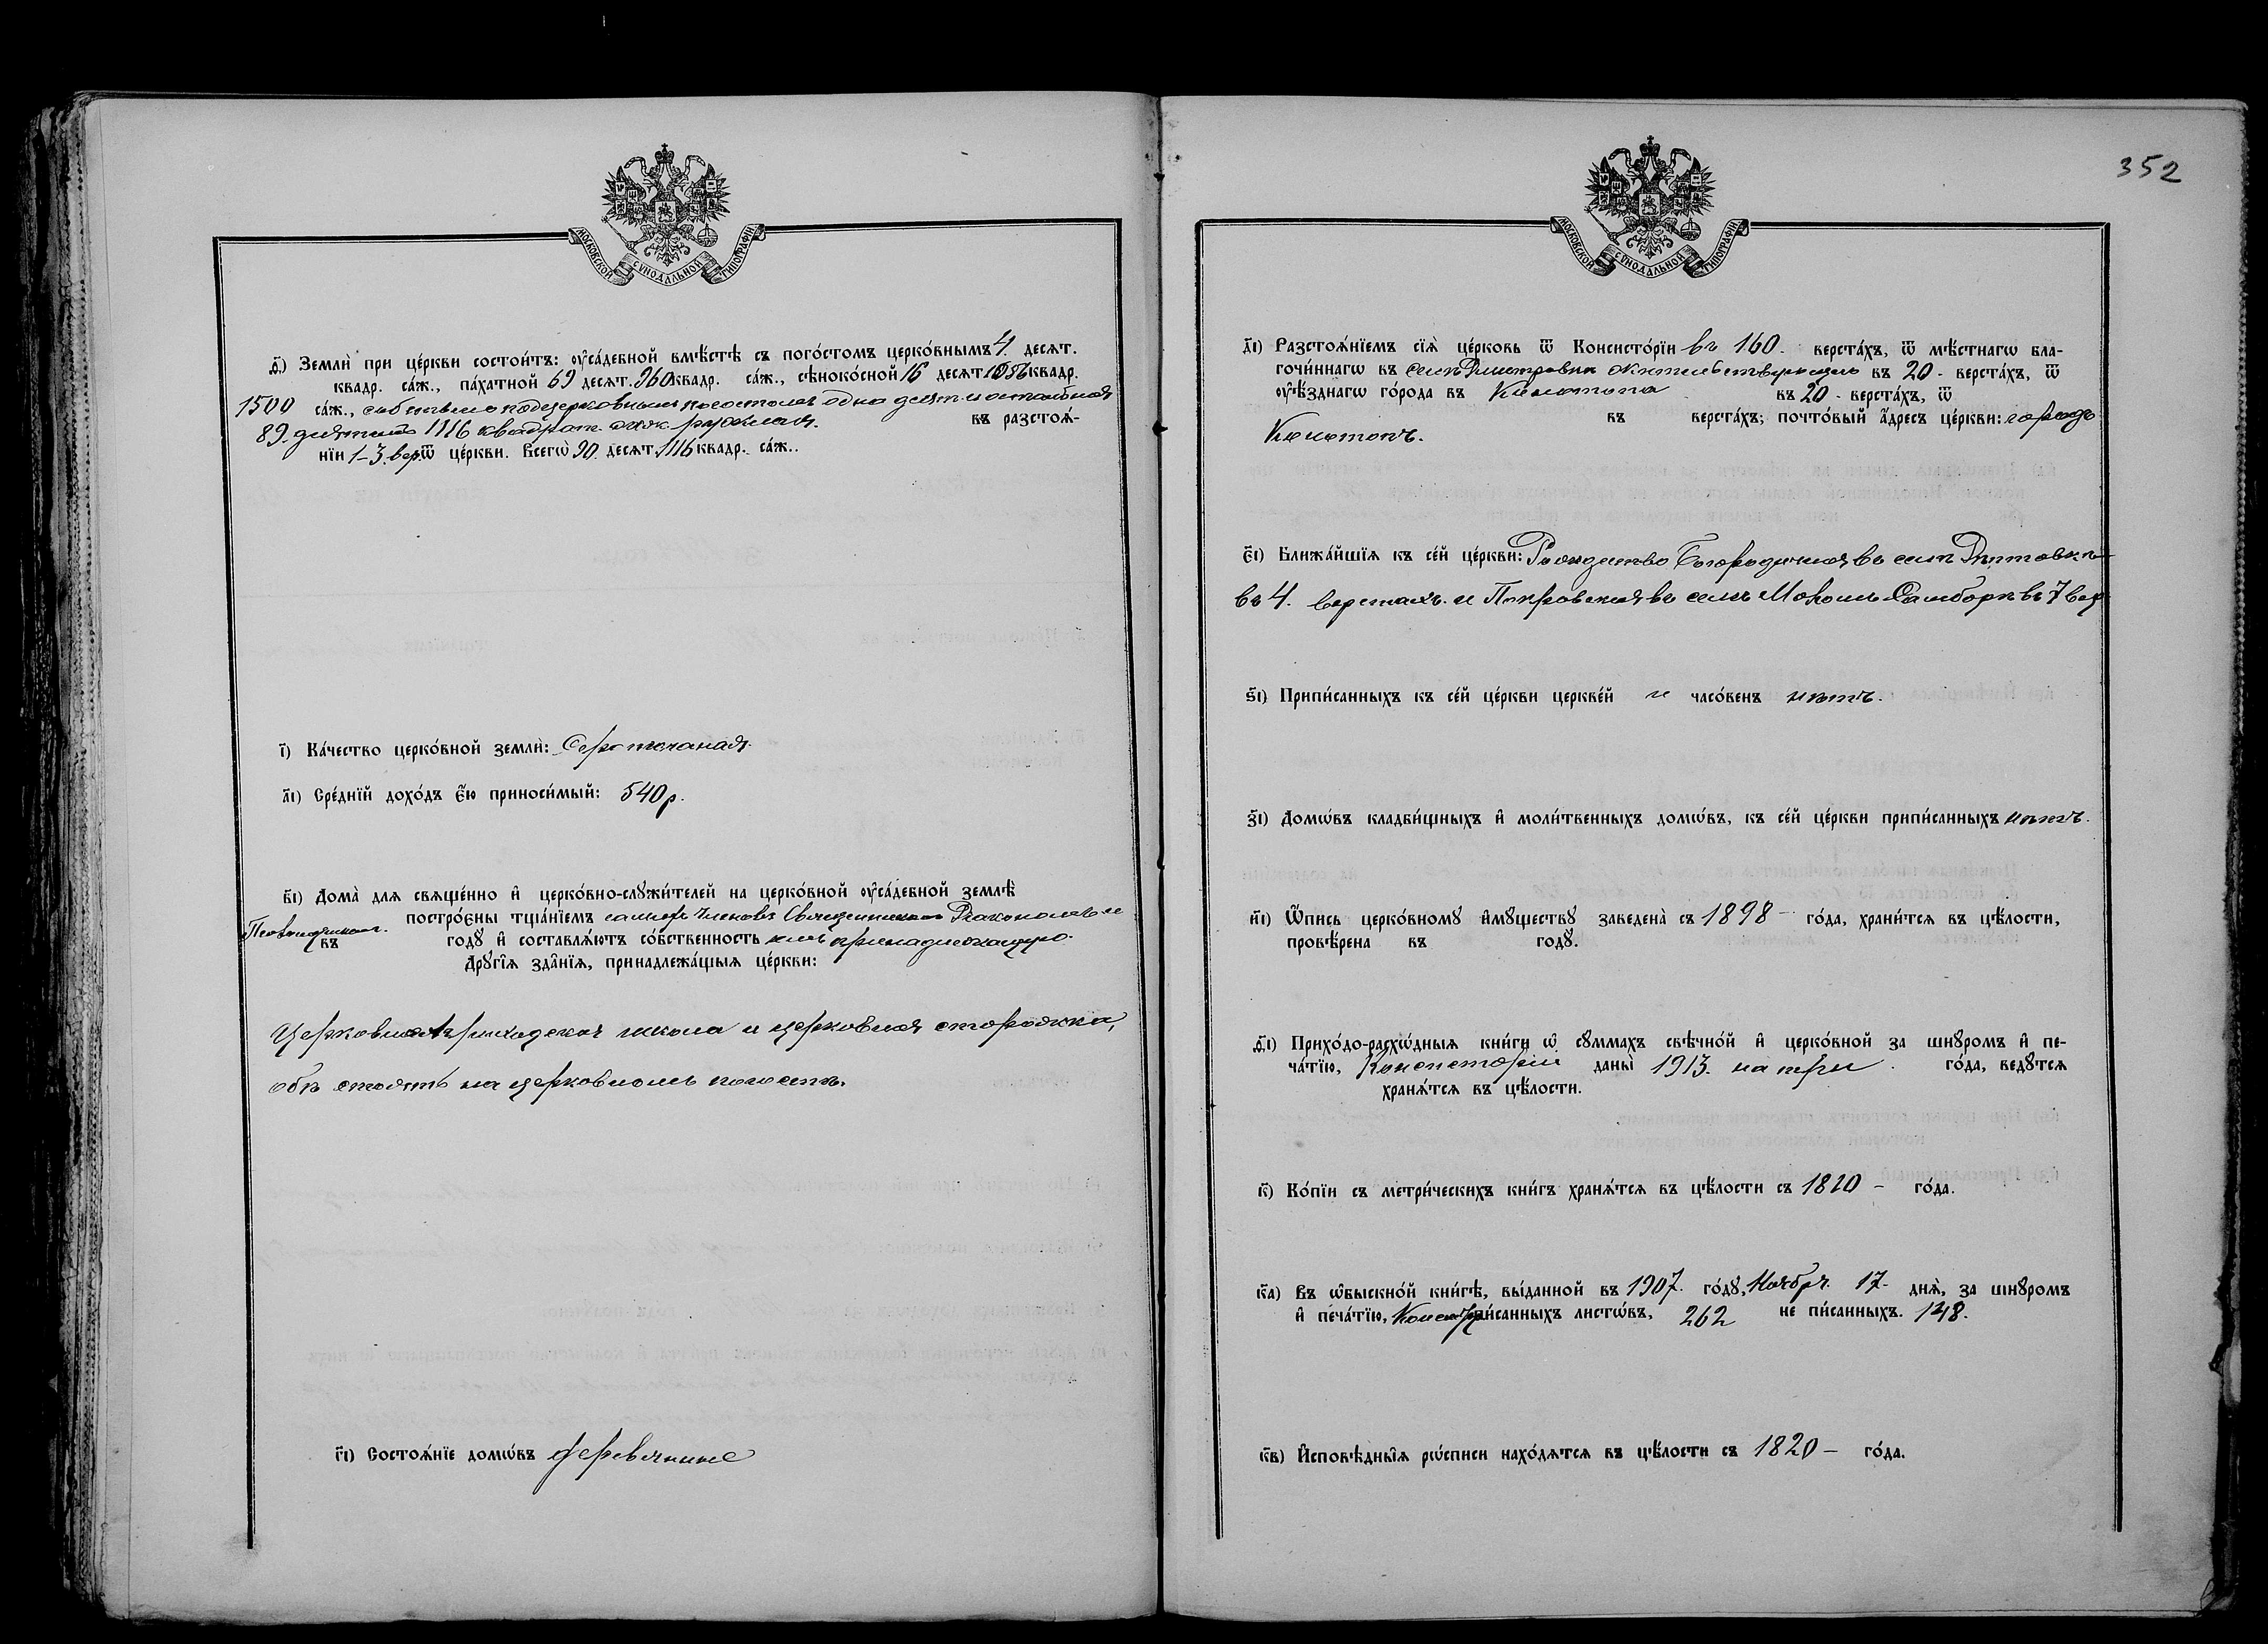 МОСКОВСКОЙ СѴНОДАЛЬНОЙ ТИПОГРАФІИ
ѳ҃) Землѝ при це́ркви состои́тъ: оу҆са́дебной вмѣ́стѣ съ пого́стомъ церко́внымъ 4. десят.
квадр. са́ж., па́хатной 69 десят. 960 квадр. са́ж., сѣноко́сной 16 десят 1056 квадр.
1500 са́ж., собственно подцерковнымъ погостомъ одна десят. и остальная
89. десятинъ 1116 квадрат. саж. ружная. въ разстоѧ́-
нїи 1-3. вер. ѿ це́ркви. Всегѡ̀ 90. десят. 1116 квадр. са́ж..
і҃) Ка́чество церко́вной землѝ: Серопесчаная.
а҃і) Сре́днїй дохо́дъ є҆́ю приноси́мый: 540 р.
в҃і) Дома̀ для свяще́нно и҆ церко́вно-слꙋжи́телей на церко́вной оу҆са́дебной землѣ̀
постро́єны тща́нїемъ самихъ членовъ Священникомъ Діакономъ и
Псаломщикомъ. въ годꙋ̀ и҆ составлѧ́ютъ со́бственность имъ принадлежащую.
Дрꙋгі̑я зда̑нїя, принадлежа́щыя це́ркви:
Церковно-приходская школа и церковная сторожка,
обѣ стоятъ на церковномъ погостѣ.
г҃і) Состоѧ́нїе домѡ́въ деревянные
352
МОСКОВСКОЙ СѴНОДАЛЬНОЙ ТИПОГРАФІИ
д҃і) Разстоѧ́нїемъ сїѧ̀ це́рковь ѿ Консисто́рїи въ 160. верста́хъ, ѿ мѣ́стнагѡ бла-
гочи́ннагѡ въ селѣ Дмитровкѣ жительствующаго въ 20 - верста́хъ, ѿ
оу҆ѣ́зднагѡ го́рода въ Конотопа въ 20 - верста́хъ, ѿ
въ верста́хъ; почто́вый а҆́дресъ це́ркви: городъ
Конотопъ.
є҃і) Ближа́йшїя къ се́й це́ркви: Рождество Богородичная въ селѣ Рѣптовкѣ
въ 4. верстахъ. и Покровская въ селѣ Мокомъ Самборѣ въ 7 вер.
ѕ҃і) Припи́санныхъ къ се́й це́ркви церкве́й и часо́венъ нѣтъ.
з҃і) Домѡ́въ кладби́щныхъ и҆ моли́твенныхъ домѡ́въ, къ се́й це́ркви припи́санныхъ нѣтъ.
и҃і) Ѡ҆́пись церко́вномꙋ и҆мꙋ́ществꙋ заведена̀ съ 1898 - го́да, храни́тся въ цѣ́лости,
провѣ́рена въ годꙋ̀.
ѳ҃і) Прихо́до-расхѡ́дныя кни́ги ѡ҆ сꙋ́ммахъ свѣчно́й и҆ церко́вной за шнꙋро́мъ и҆ пе-
ча́тїю, Консисторіи даны̀ 1913. на три. го́да, ведꙋ́тся
хранѧ́тся въ цѣ́лости.
к҃) Ко́пїи съ метри́ческихъ кни́гъ хранѧ́тся въ цѣ́лости съ 1820 - го́да.
к҃а) Въ ѡ҆быскно́й кни́гѣ, вы́данной въ 1907. го́дꙋ, Ноября. 17. днѧ̀, за шнꙋро́мъ
и҆ печа́тїю, писанныхъ листѡ́въ, 262 не пи́санныхъ. 138.
к҃в) И҆сповѣ̑дныѧ рѡ́списи нахо́дятся въ цѣ́лости съ 1820 - го́да.